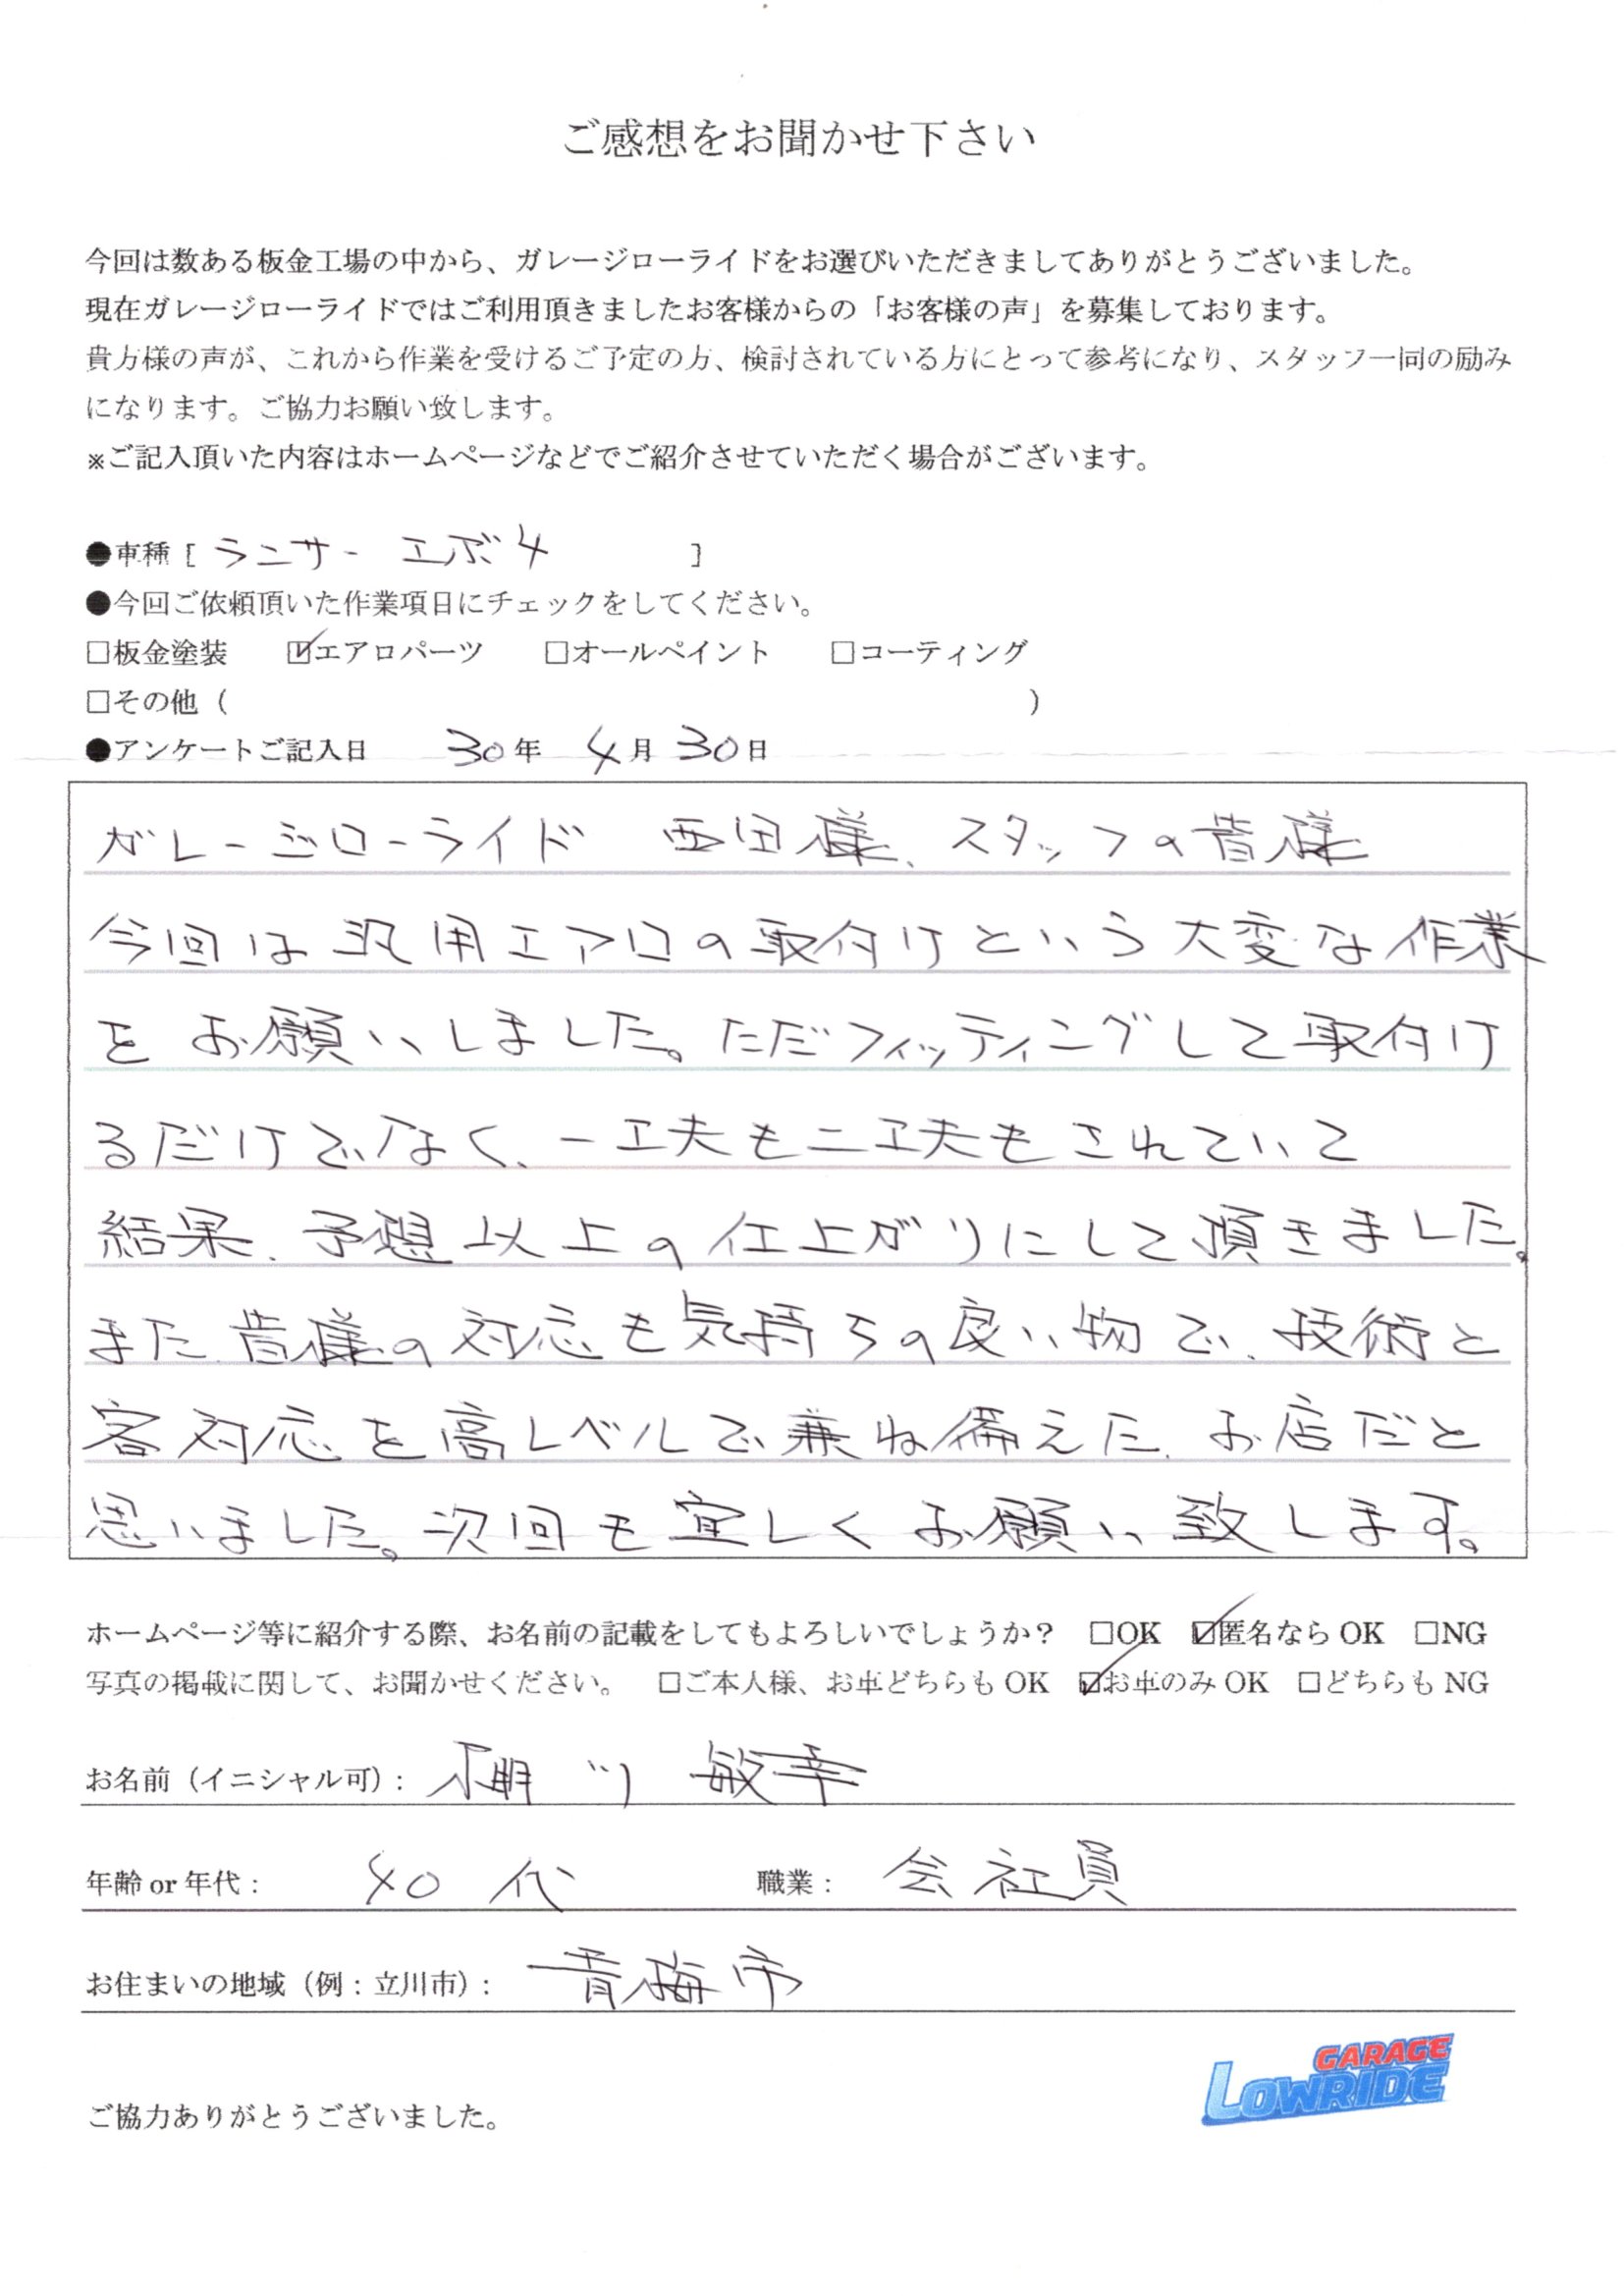 ご感想をお聞かせ下さい
今回は数ある板金工場の中から、ガレージローライドをお選びいただきましてありがとうございました。
現在ガレージローライドではご利用頂きましたお客様からの「お客様の声」を募集しております。
貴方様の声が、これから作業を受けるご予定の方、検討されている方にとって参考になり、スタッフ一同の励み
になります。ご協力お願い致します。
※ご記入頂いた内容はホームページなどでご紹介させていただく場合がございます。
●車種 [ ランサー エボ4 ]
●今回ご依頼頂いた作業項目にチェックをしてください。
□板金塗装 ☑エアロパーツ □オールペイント □コーティング
□その他（ ）
●アンケートご記入日 30年 4月 30日
ガレージローライド 西田様、スタッフの皆様
今回は汎用エアロの取付けという大変な作業
をお願いしました。ただフィッティングして取付け
るだけでなく、一工夫も二工夫もされていて
結果、予想以上の仕上がりにして頂きました。
また、皆様の対応も気持ちの良い物で、技術と
客対応を高レベルで兼ね備えた、お店だと
思いました。次回も宜しくお願い致します。
ホームページ等に紹介する際、お名前の記載をしてもよろしいでしょうか？ □OK ☑匿名なら OK □NG
写真の掲載に関して、お聞かせください。 □ご本人様、お車どちらも OK ☑お車のみ OK □どちらも NG
お名前（イニシャル可）： 棚川 敏幸
年齢 or 年代： 40代 職業： 会社員
お住まいの地域（例：立川市）： 青梅市
GARAGE
LOWRIDE
ご協力ありがとうございました。